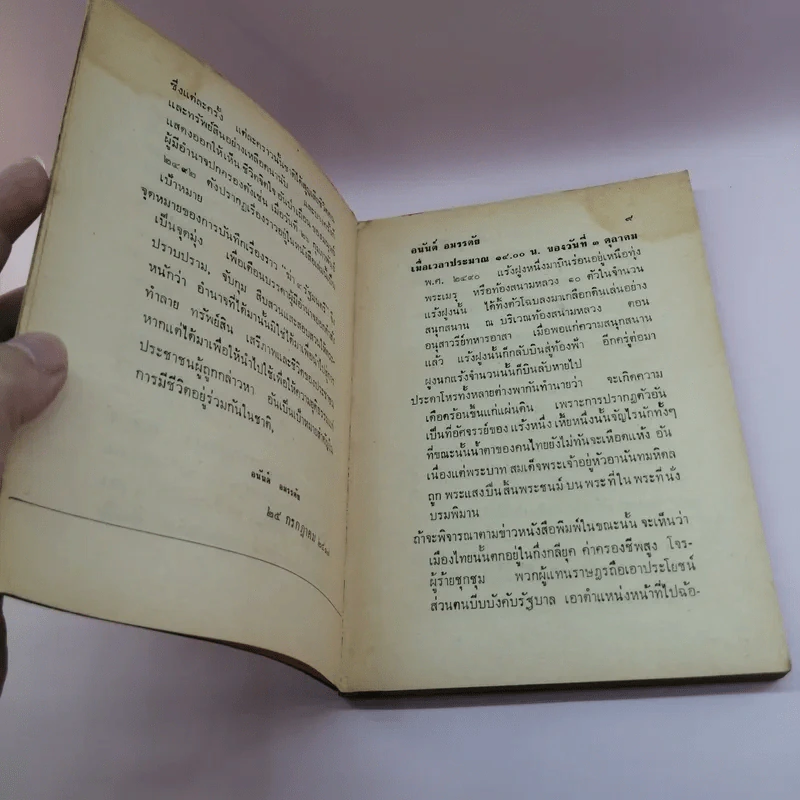 ซึ่งแต่ละครั้ง แต่ละคราวนั้น
และทรัพย์สินอย่างเหลือคณานับ
แสดงออกให้เห็น ชีวิตจิตใจ อันป่าเถื่อน
ผู้มีอำนาจปกครองดังเช่น เมื่อวันที่
๒๔๙๒ ดังปรากฏเรื่องราวอยู่ในหนังสือ
เป้าหมาย
จุดหมายของการบันทึกเรื่องราว
เป็นจุดมุ่ง เพื่อเตือนบรรดาผู้มีอำนาจ
ปราบปราม, จับกุม สืบสวนและสอบสวน
หนักว่า อำนาจที่ได้มานั้นมิใช่ได้มาเพื่อ
ทำลาย ทรัพย์สิน เสรีภาพและชีวิตของประชาชน
หากแต่ได้มาเพื่อให้นำไปใช้เพื่อให้ความยุติธรรมแก่
ประชาชนผู้ถูกกล่าวหา อันเป็นเป้าหมาย
การมีชีวิตอยู่ร่วมกันในชาติ.
อนันต์ อมรรตัย
๒๕ กรกฎาคม
๙
อนันต์ อมรรตัย
เมื่อเวลาประมาณ ๑๔.๐๐ น. ของวันที่ ๓ ตุลาคม
พ.ศ. ๒๔๙๐ แร้งฝูงหนึ่งมาบินร่อนอยู่เหนือทุ่ง
พระเมรุ หรือท้องสนามหลวง ๑๐ ตัวในจำนวน
แร้งฝูงนั้น ได้ทิ้งตัวโฉบลงมาเกลือกดินเล่นอย่าง
สนุกสนาน ณ บริเวณท้องสนามหลวง ตอน
อนุสาวรีย์ทหารอาสา เมื่อพอแก่ความสนุกสนาน
แล้ว แร้งฝูงนั้นก็กลับบินสู่ท้องฟ้า อีกครู่ต่อมา
ฝูงนกแร้งจำนวนนั้นก็บินลับหายไป
ประดาโหรทั้งหลายต่างพากันทำนายว่า จะเกิดความ
เดือดร้อนขึ้นแก่แผ่นดิน เพราะการปรากฏตัวอัน
เป็นที่อัศจรรย์ของ แร้งหนึ่ง เหี้ยหนึ่งนั้นจัญไรนักทั้งๆ
ที่ขณะนั้นน้ำตาของคนไทยยังไม่ทันจะเหือดแห้ง อัน
เนื่องแต่พระบาท สมเด็จพระเจ้าอยู่หัวอานันทมหิดล
ถูก พระแสงปืน สิ้นพระชนม์ บน พระที่ใน พระที่นั่ง
บรมพิมาน
ถ้าจะพิจารณาตามข่าวหนังสือพิมพ์ในขณะนั้น จะเห็นว่า
เมืองไทยนั้นตกอยู่ในกึ่งกลียุค ค่าครองชีพสูง โจร-
ผู้ร้ายชุกชุม พวกผู้แทนราษฎรถือเอาประโยชน์
ส่วนตนบีบบังคับรัฐบาล เอาตำแหน่งหน้าที่ไปฉ้อ-